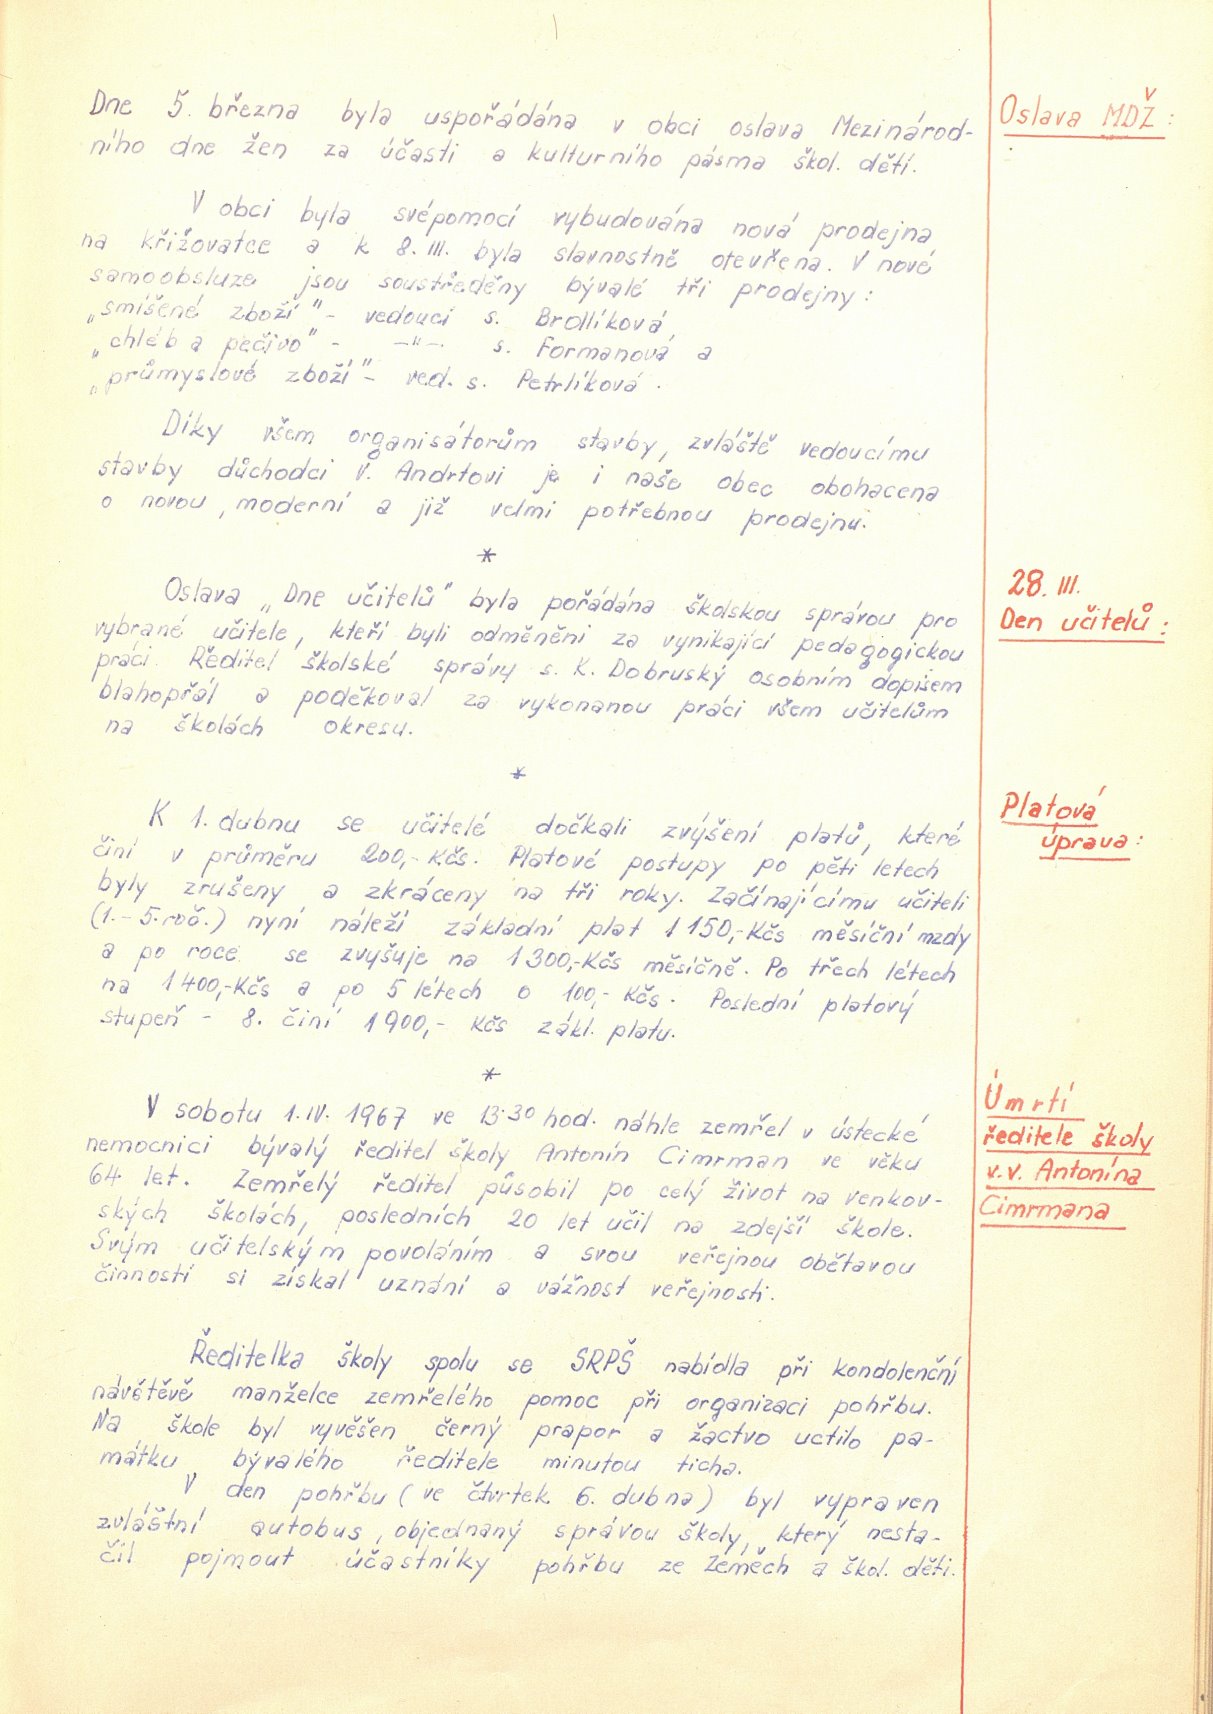 Oslava MDŽ :
Dne 5. března byla uspořádána v obci oslava Mezinárod-
ního dne žen za účasti a kulturního pásma škol. dětí.
V obci byla svépomocí vybudována nová prodejna
na křižovatce a k 8. III. byla slavnostně otevřena. V nové
samoobsluze jsou soustředěny bývalé tři prodejny :
„smíšené zboží" - vedoucí s. Brollíková,
„chléb a pečivo" - —„— s. Formanová a
„průmyslové zboží" - ved. s. Petrlíková .
Díky všem organisátorům stavby, zvláště vedoucímu
stavby důchodci V. Andrtovi je i naše obec obohacena
o novou , moderní a již velmi potřebnou prodejnu.
*
28. III.
Den učitelů :
Oslava „Dne učitelů" byla pořádána školskou správou pro
vybrané učitele, kteří byli odměněni za vynikající pedagogickou
práci. Ředitel školské správy s. K. Dobruský osobním dopisem
blahopřál a poděkoval za vykonanou práci všem učitelům
na školách okresu.
*
Platová
úprava :
K 1. dubnu se učitelé dočkali zvýšení platů, které
činí v průměru 200,- Kčs. Platové postupy po pěti letech
byly zrušeny a zkráceny na tři roky. Začínajícímu učiteli
(1. - 5. roč.) nyní náleží základní plat 1 150,- Kčs měsíční mzdy
a po roce se zvyšuje na 1 300,- Kčs měsíčně. Po třech létech
na 1 400,- Kčs a po 5 létech o 100,- Kčs. Poslední platový
stupeň - 8. činí 1 900,- Kčs zákl. platu.
*
Úmrtí
ředitele školy
v. v. Antonína
Cimrmana
V sobotu 1. IV. 1967 ve 13.30 hod. náhle zemřel v ústecké
nemocnici bývalý ředitel školy Antonín Cimrman ve věku
64 let. Zemřelý ředitel působil po celý život na venkov-
ských školách, posledních 20 let učil na zdejší škole.
Svým učitelským povoláním a svou veřejnou obětavou
činností si získal uznání a vážnost veřejnosti.
Ředitelka školy spolu se SRPŠ nabídla při kondolenční
návštěvě manželce zemřelého pomoc při organizaci pohřbu.
Na škole byl vyvěšen černý prapor a žactvo uctilo pa-
mátku bývalého ředitele minutou ticha.
V den pohřbu (ve čtvrtek 6. dubna) byl vypraven
zvláštní autobus , objednaný správou školy, který nesta-
čil pojmout účastníky pohřbu ze Zeměch a škol. děti.